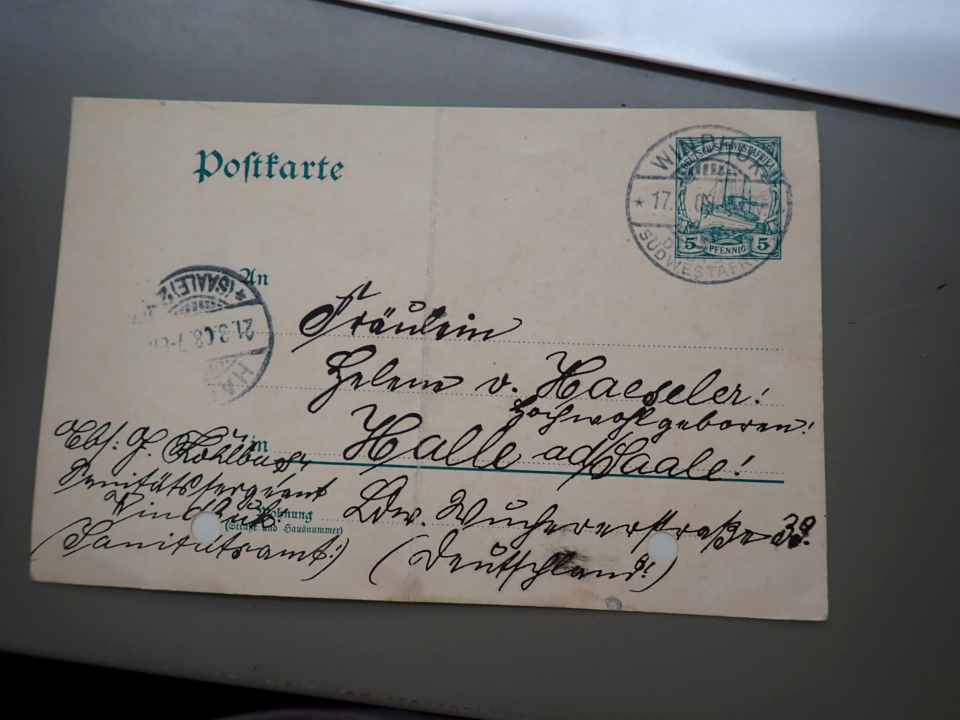 Postkarte
WINDHUK
DEUTSCH-SÜDWESTAFRIKA
* 17. 08
SÜDWESTAFR
5 PFENNIG 5
An
* (SAALE) * 2
21.3.08.7-
HA
Fräulein
Helene v. Haeseler!
Hochwohlgeboren!
in
Halle a/d Saale!
Abs: G. Kohlbach,
Sanitätssergeant
Windhuk
(Sanitätsamt!)
Wohnung
(Straße und Hausnummer)
Ldw. Wuchererstraße 39.
(Deutschland!)